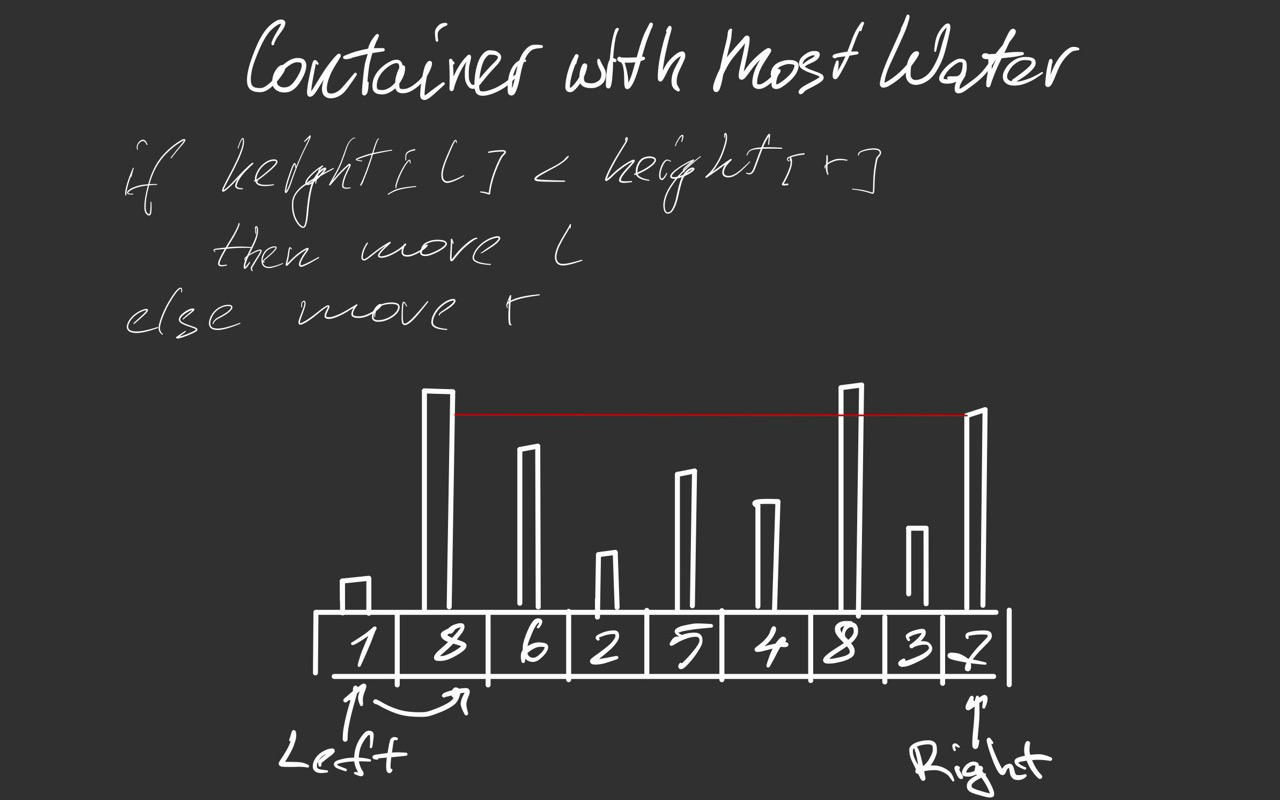 Container with Most Water
if height[L] < height[r]
then move L
else move r
1 8 6 2 5 4 8 3 7
Left Right